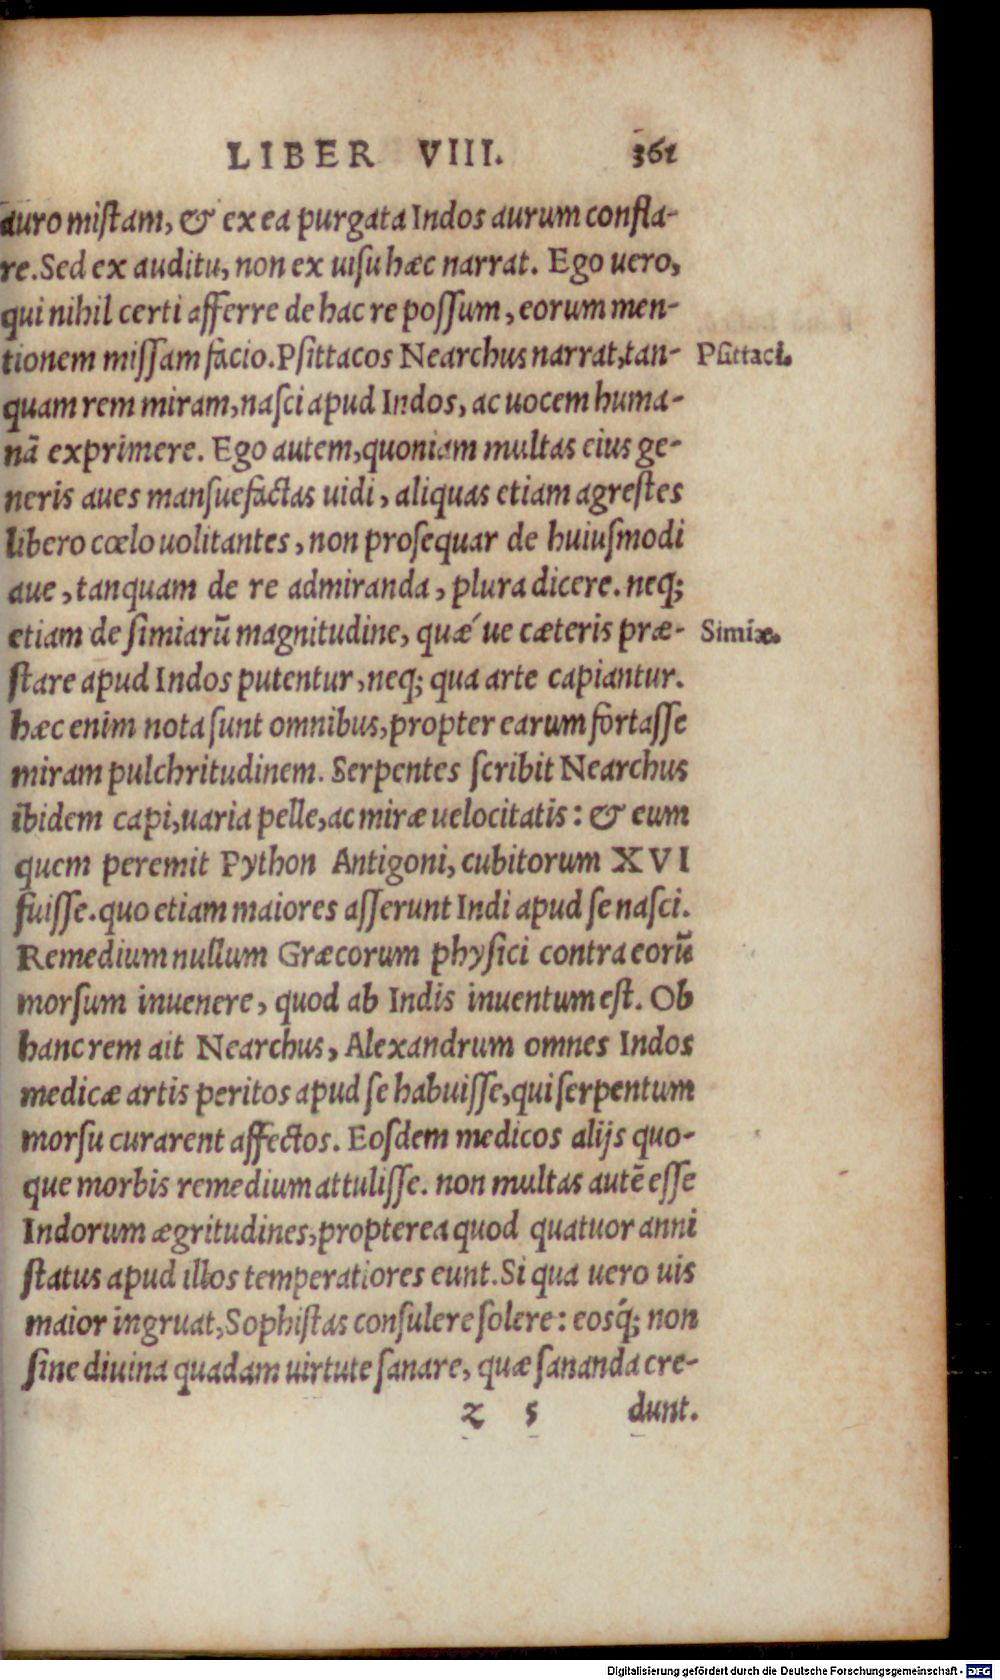 LIBER VIII. 361
auro miſtam, & ex ea purgata Indos aurum confla-
re. Sed ex auditu, non ex uiſu hæc narrat. Ego uero,
qui nihil certi afferre de hac re poſſum, eorum men-
tionem miſſam facio. Pſittacos Nearchus narrat, tan-
Pſittaci.
quam rem miram, naſci apud Indos, ac uocem huma-
nā exprimere. Ego autem, quoniam multas eius ge-
neris aues manſuefactas uidi, aliquas etiam agreſtes
libero cœlo uolitantes, non proſequar de huiuſmodi
aue, tanquam de re admiranda, plura dicere. neq;
etiam de ſimiarū magnitudine, quæ´ ue cæteris præ-
Simiæ.
ſtare apud Indos putentur, neq; qua arte capiantur.
hæc enim nota ſunt omnibus, propter earum fortaſſe
miram pulchritudinem. Serpentes ſcribit Nearchus
ibidem capi, uaria pelle, ac miræ uelocitatis: & eum
quem peremit Python Antigoni, cubitorum XVI
fuiſſe. quo etiam maiores aſſerunt Indi apud ſe naſci.
Remedium nullum Græcorum phyſici contra eorū
morſum inuenere, quod ab Indis inuentum eſt. Ob
hanc rem ait Nearchus, Alexandrum omnes Indos
medicæ artis peritos apud ſe habuiſſe, qui ſerpentum
morſu curarent affectos. Eoſdem medicos alijs quo-
que morbis remedium attuliſſe. non multas autē eſſe
Indorum ægritudines, propterea quod quatuor anni
ſtatus apud illos temperatiores eunt. Si qua uero uis
maior ingruat, Sophiſtas conſulere ſolere: eosq́; non
ſine diuina quadam uirtute ſanare, quæ ſananda cre-
z 5 dunt.
Digitalisierung gefördert durch die Deutsche Forschungsgemeinschaft - DFG